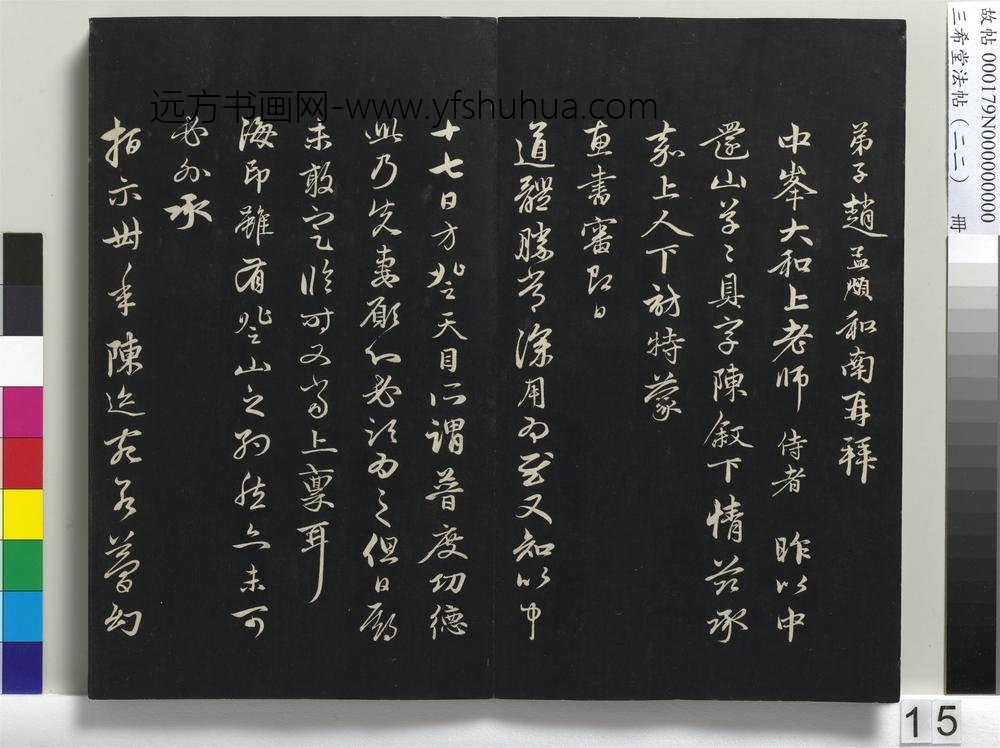 弟子趙孟頫和南再拜
中峯大和上老師侍者昨以中
還山草々具字陳叙下情茲承
嘉上人下訪特蒙
惠書審即日
道體勝常深用為慰又知以中
十七日方登天目所謂普度功德
此乃先妻願心必須為之但日子
未敢定臨時又當上稟耳
海印雖有登山之約然亦未可
必外承
指示卅年陳迹宛若夢幻
远方书画网-www.yfshuhua.com
故帖 000179N000000000
三希堂法帖（二二） 冊
15